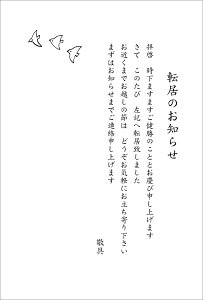 転居のお知らせ
拝啓　時下ますますご健勝のこととお慶び申し上げます
さて　このたび　左記へ転居致しました
お近くまでお越しの節は　どうぞお気軽にお立ち寄り下さい
まずはお知らせまでご連絡申し上げます
敬具